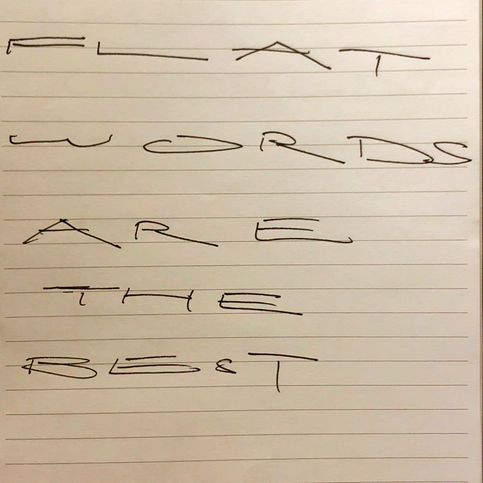 FLAT
WORDS
ARE
THE
BEST